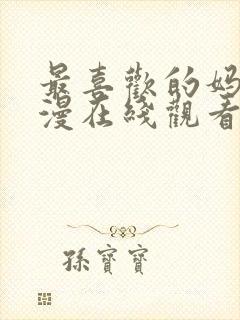 最喜歡的妈
漫在綫觀看
孫寶寶